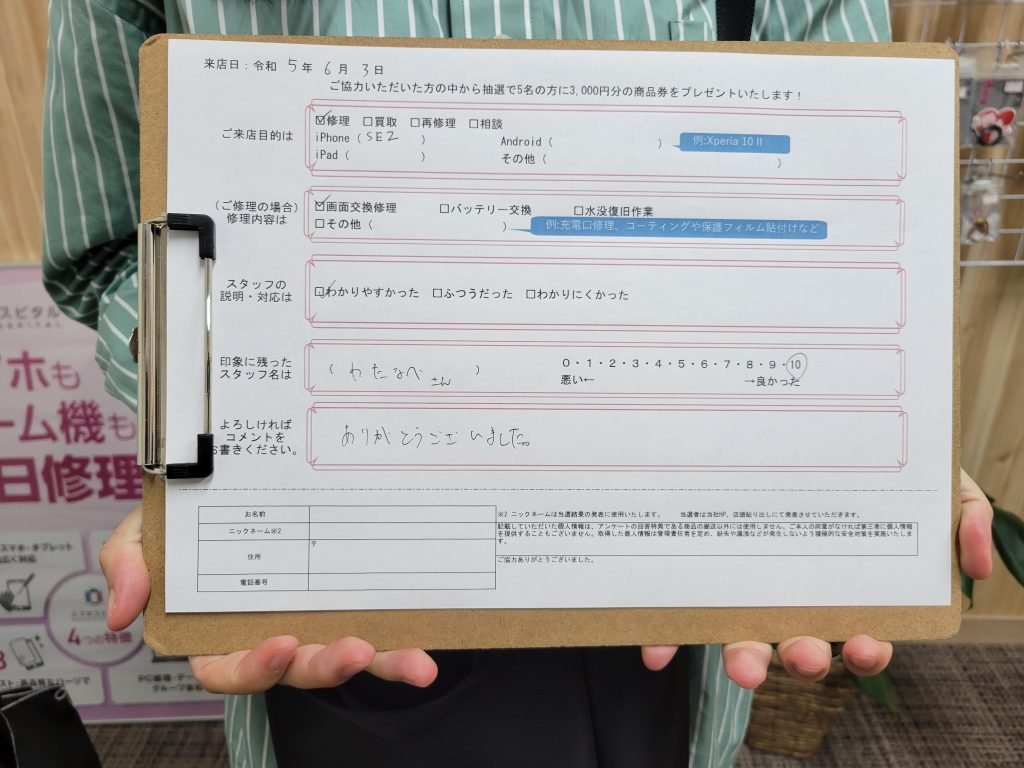 来店日：令和 5 年 6 月 3 日
ご協力いただいた方の中から抽選で5名の方に3,000円分の商品券をプレゼントいたします！
ご来店目的は
☑修理 □買取 □再修理 □相談
iPhone（ SE2 ） Android（ ） 例:Xperia 10 II
iPad（ ） その他（ ）
（ご修理の場合）
修理内容は
☑画面交換修理 □バッテリー交換 □水没復旧作業
□その他（ ） 例:充電口修理、コーティングや保護フィルム貼付けなど
スタッフの
説明・対応は
☑わかりやすかった □ふつうだった □わかりにくかった
印象に残った
スタッフ名は
（ わたなべ さん ） 0・1・2・3・4・5・6・7・8・9・10
悪い← →良かった
よろしければ
コメントを
お書きください。
ありがとうございました。
お名前
ニックネーム※2
住所 〒
電話番号
※2 ニックネームは当選結果の発表に使用いたします。 当選者は当社HP、店頭貼り出しにて発表させていただきます。
記載していただいた個人情報は、アンケートの回答特典である商品の郵送以外には使用しません。ご本人の同意がなければ第三者に個人情報
を提供することもございません。取得した個人情報は管理責任者を定め、紛失や漏洩などが発生しないよう積極的な安全対策を実施いたしま
す。
ご協力ありがとうございました。
スピタル
ホも
ーム機も
日修理
スマホ・タブレット
4つの特徴